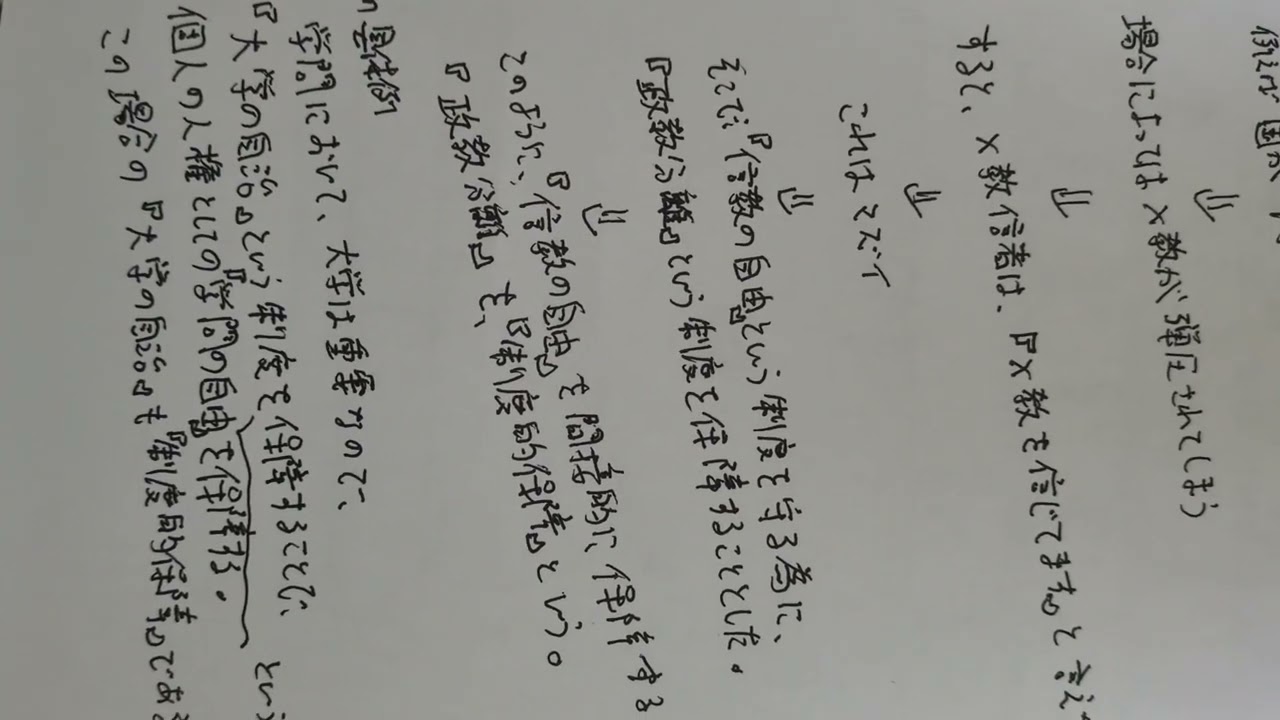 例えば 国が
⇓
場合によっては ×教が 弾圧されてしまう
⇓
すると、×教信者は、『×教を信じてます』と 言え
⇓
これは マズイ
⇓
そこで、『信教の自由』という 制度を 守る為に、
『政教分離』という 制度を 保障することとした。
⇓
このように、『信教の自由』を 間接的に 保障する
『政教分離』を、『制度的保障』という。
の具体例
学問において、大学は重要なので、
『大学の自治』という 制度を 保障することで、
個人の人権としての『学問の自由』を保障する。 という
この場合の『大学の自治』も『制度的保障』である